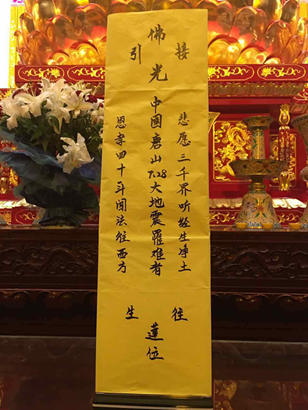 佛光
接引
悲愿三千界听经生净土
中国唐山7.28大地震罹难者
恩孝四十年闻法往西方
往生
莲位